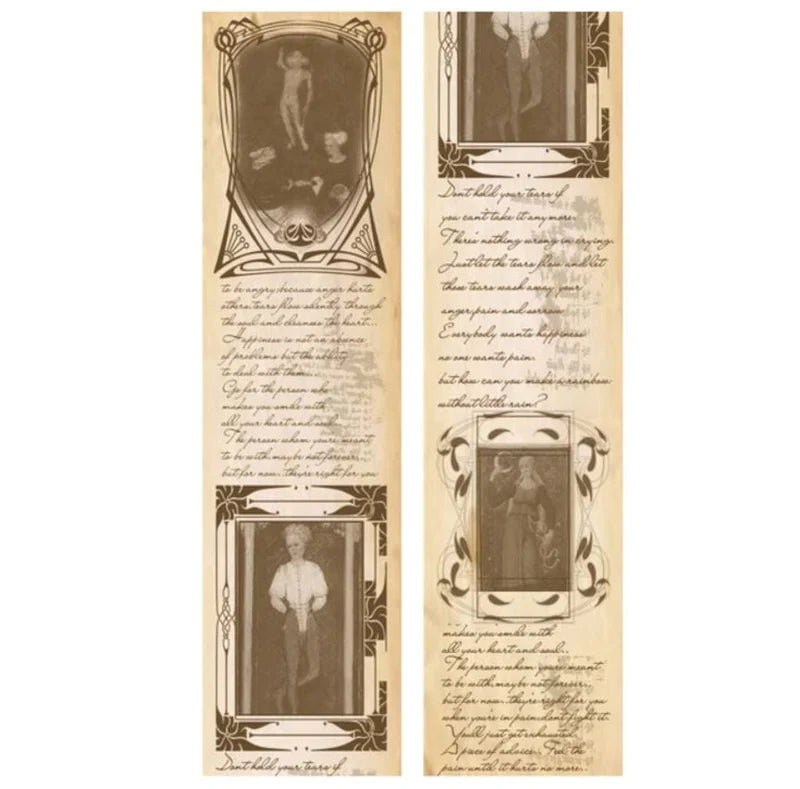 to be angry, because anger hurts
others, tears flow silently through
the soul and cleanses the heart...
Happiness is not an absence
of problems but the ability
to deal with them...
Go for the person who
makes you smile with
all your heart and soul..
The person whom you're meant
to be with, may be not forever..
but for now.. they're right for you
Dont hold your tears if
Dont hold your tears if
you can't take it anymore.
There's nothing wrong in crying.
Just let the tears flow and let
those tears wash away your
anger, pain and sorrow
Everybody wants happiness
no one wants pain.
but how can you make a rainbow
without little rain?
makes you smile with
all your heart and soul..
The person whom you're meant
to be with, may be not forever..
but for now.. they're right for you
when you're in pain, dont fight it.
You'll just get exhausted.
A piece of advice.. Feel the
pain until it hurts no more..